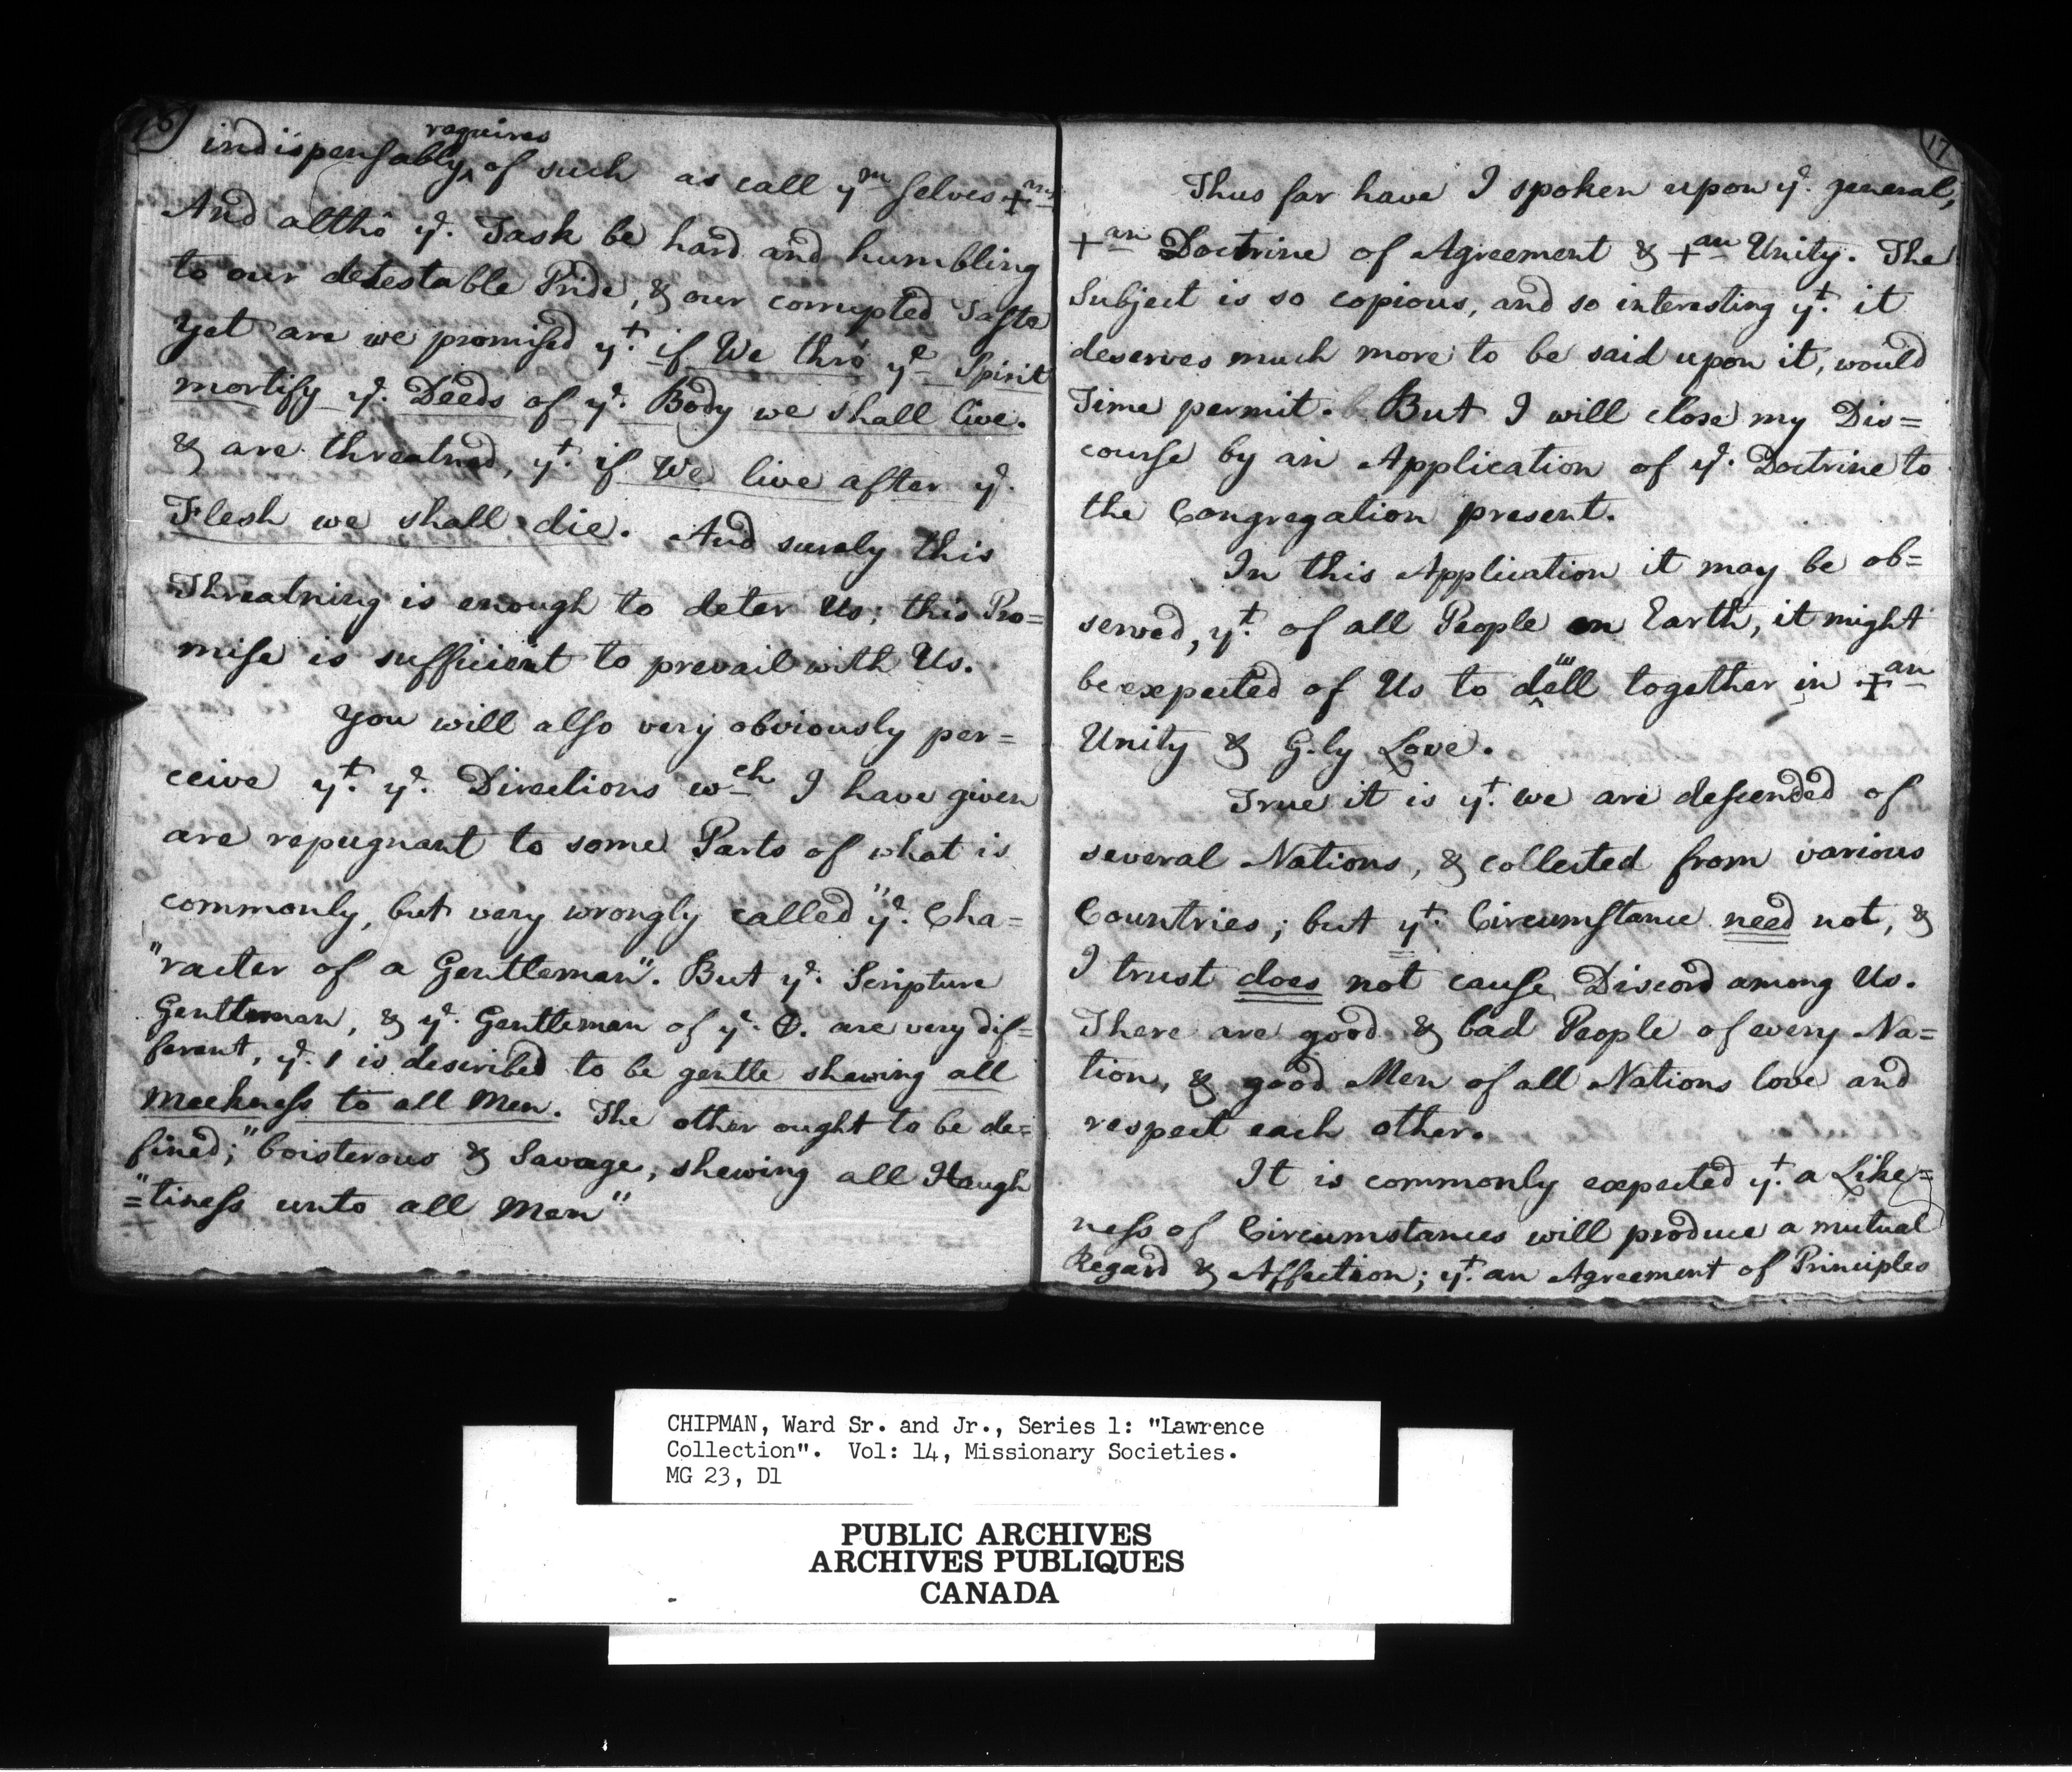 16
requires
indispensably ^ of such as call yᵐ selves +ⁿˢ
And altho' yᵉ. Task be hard and humbling
to our detestable Pride, & our corrupted Taste
Yet are we promised yᵗ. if We thro' yᵉ Spirit
mortify yᵉ. Deeds of yᵉ. Body we shall live.
& are threatned, yᵗ. if We live after yᵉ.
Flesh we shall die. And surely this
Threatning is enough to deter Us; this Pro=
mise is sufficient to prevail with Us.
You will also very obviously per=
ceive yᵗ. yᵉ. Directions wᶜʰ I have given
are repugnant to some Parts of what is
commonly, but very wrongly called "yᵉ. Cha=
"racter of a Gentleman". But yᵉ. Scripture
Gentleman, & yᵉ. Gentleman of yᵉ. are very dif=
ferent, yᵉ. 1 is described to be gentle shewing all
Meekness to all Men. The other ought to be de=
fined; "boisterous & Savage, shewing all Haugh
="tiness unto all Men"
17
Thus far have I spoken upon yᵉ. general,
+ᵃⁿ Doctrine of Agreement & +ᵃⁿ Unity. The
Subject is so copious, and so interesting yᵗ. it
deserves much more to be said upon it, would
Time permit. But I will close my Dis=
course by an Application of yᵉ. Doctrine to
the Congregation present.
In this Application it may be ob=
served, yᵗ. of all People on Earth, it might
be expected of Us to d^well together in +ᵃⁿ
Unity & G.ly Love.
True it is yᵗ. we are descended of
several Nations, & collected from various
Countries; but yᵗ. Circumstance need not, &
I trust does not cause Discord among Us.
There are good & bad People of every Na=
tion, & good Men of all Nations love and
respect each other.
It is commonly expected yᵗ. a Like=
ness of Circumstances will produce a mutual
Regard & Affection; yᵗ. an Agreement of Principles
CHIPMAN, Ward Sr. and Jr., Series 1: "Lawrence
Collection". Vol: 14, Missionary Societies.
MG 23, D1
PUBLIC ARCHIVES
ARCHIVES PUBLIQUES
CANADA